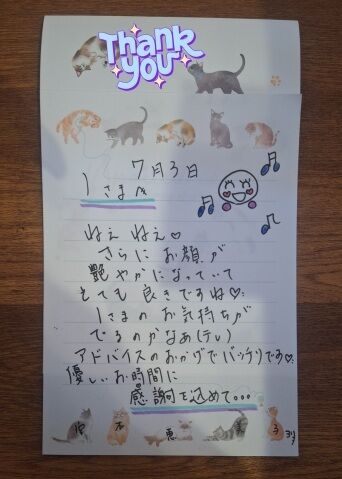 Thank
you
7月3日
Iさま
ねえ ねえ♡
さらに お顔が
艶やかになっていて
とても 良きですね♡
Iさまの お気持ちが
でるのかなあ(テレ)
アドバイスのおかげでバッチリです♡
優しいお時間に
感謝を込めて…
恵 美子より